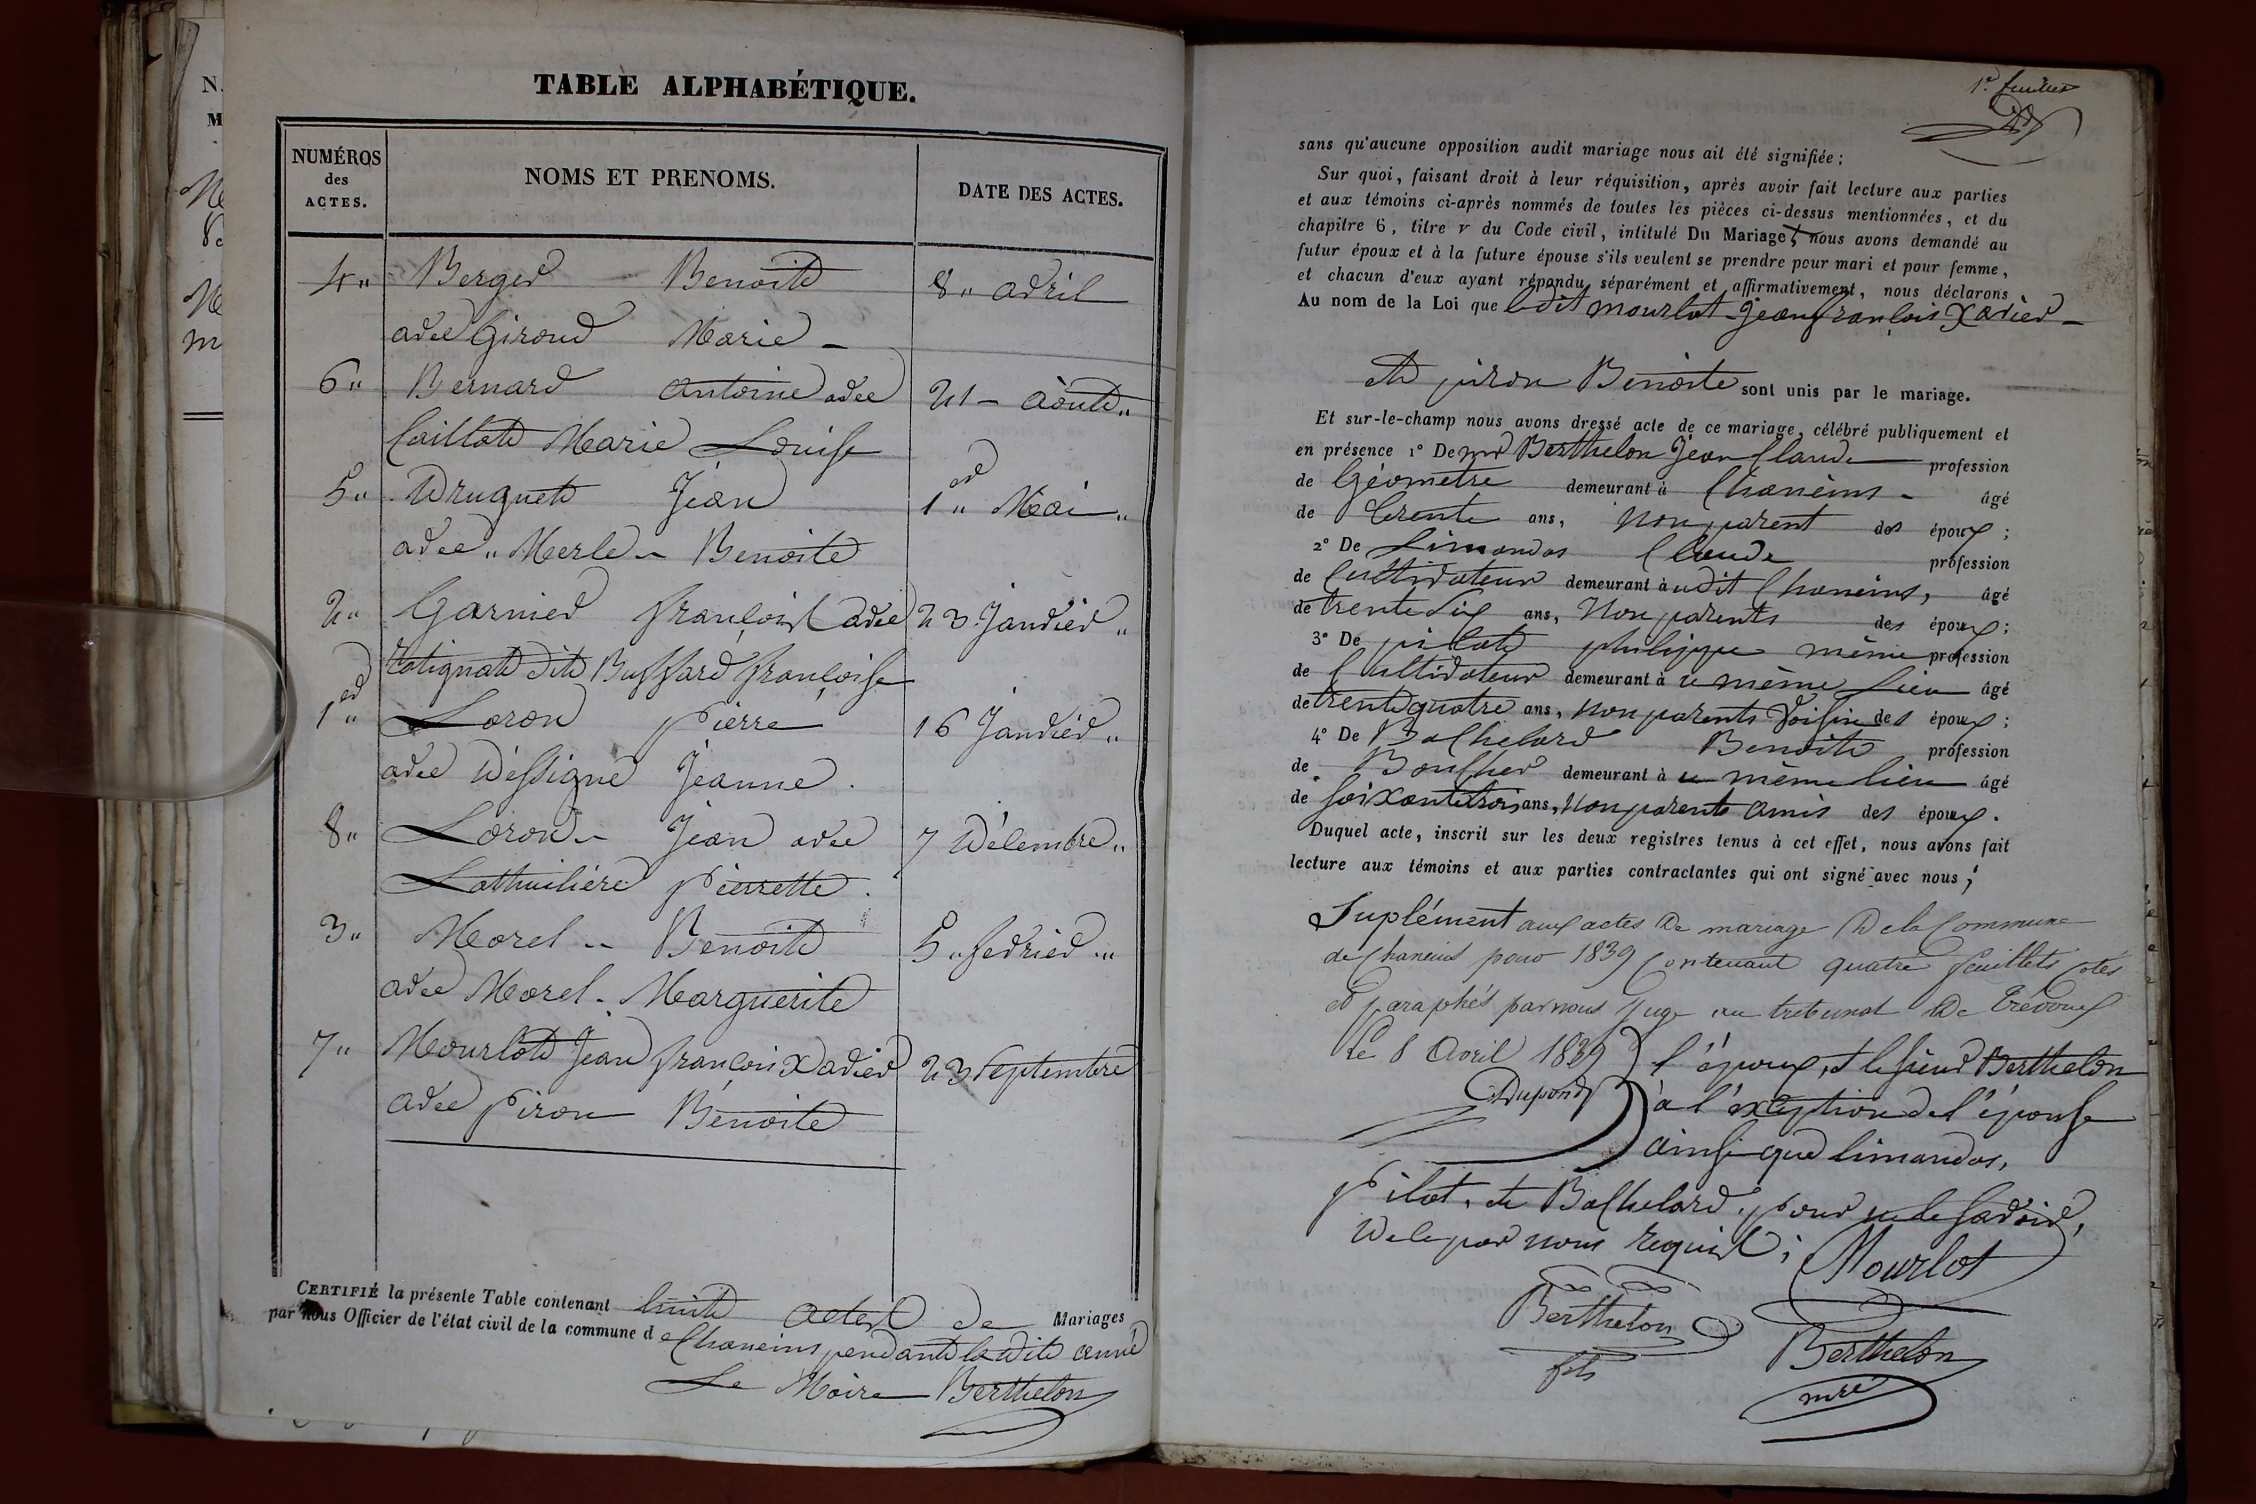 N.
M
TABLE ALPHABÉTIQUE.
NUMÉROS
des
ACTES.
NOMS ET PRENOMS.
DATE DES ACTES.
4" Berger Benoite 8" avril
avec Giroud Marie -
6" Bernard antoine avec 21 - Aôute"
Caillote Marie Louise
5" Druguete Jéan 1er" Mai"
avec " Merle - Benoite
2" Garnier françois avec 23 Janvier"
Cotignate dite Buffard françoise
1er" Loron Pierre 16 Janvier"
avec Déssigne Jeanne.
8" Loron - Jéan avec 7 Décembre"
Lathuiliére Pierrette.
3" Morel - Benoite 5" fevrier"
avec Morel - Marguerite
7" Mourlote Jean françois Xavier 23 septembre
avec Piron Bénoite
CERTIFIÉ la présente Table contenant huite actes de Mariages
par nous Officier de l'état civil de la commune de
Chaneins pendante la dite année
Le Maire Berthelon
1er feuillet
sans qu'aucune opposition audit mariage nous ait été signifiée;
Sur quoi, faisant droit à leur réquisition, après avoir fait lecture aux parties
et aux témoins ci-après nommés de toutes les pièces ci-dessus mentionnées, et du
chapitre 6, titre v du Code civil, intitulé Du Mariage, nous avons demandé au
futur époux et à la future épouse s'ils veulent se prendre pour mari et pour femme,
et chacun d'eux ayant répondu séparément et affirmativement, nous déclarons
Au nom de la Loi que ledit mourlot Jean françois Xavier -
ete piron Bénoite sont unis par le mariage.
Et sur-le-champ nous avons dressé acte de ce mariage, célébré publiquement et
en présence 1° De mr Berthelon Jean Claude profession
de Géometre demeurant à Chaneins - âgé
de trente ans, non parent des époux;
2° De Limandas Claude profession
de Cultivateur demeurant à udit Chaneins, âgé
de trente six ans, Non parents des époux;
3° De pilate philippe même profession
de Cultivateur demeurant à u même lieu âgé
de trente quatre ans, non parents voisin des époux;
4° De Bachelard Benoite profession
de Boucher demeurant à u même lieu âgé
de soixante trois ans, Non parents amis des époux.
Duquel acte, inscrit sur les deux registres tenus à cet effet, nous avons fait
lecture aux témoins et aux parties contractantes qui ont signé avec nous;
Suplément aux actes De mariage De la Commune
de Chaneins pour 1839 Contenant quatre feuillets cotés
et paraphés par nous Juge au tribunal De Trévoux
le 8 Avril 1839
Dupond
l'époux, et le sieur Berthelon
à l'exception de l'épouse
ainsi que limandas,
Pilot, ete Bachelard, pour ne le savoir,
De ce par nous requis;
Mourlot
Berthelon
fils
Berthelon
mre